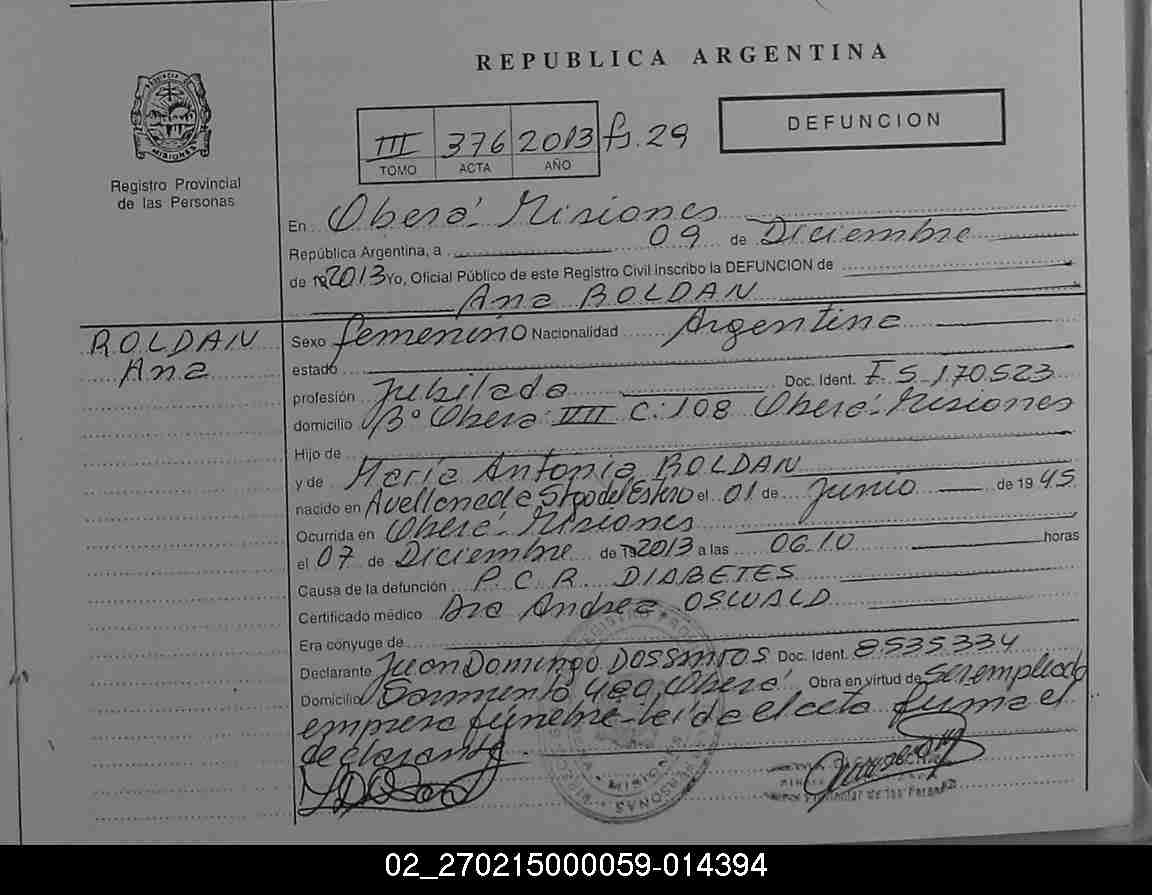 REPUBLICA ARGENTINA
III 376 2013 fs. 29
TOMO ACTA AÑO
DEFUNCION
MISIONES
Registro Provincial
de las Personas
En Oberá - Misiones
República Argentina, a 09 de Diciembre
de 192013 Yo, Oficial Público de este Registro Civil inscribo la DEFUNCION de
Ana ROLDAN
ROLDAN
Ana
Sexo femenino Nacionalidad Argentina
estado
profesión Jubilada Doc. Ident. F. 5.170.523
domicilio Bº Oberá VIII C: 108 Oberá - Misiones
Hijo de
y de María Antonia ROLDAN
nacido en Avellaneda Stgo del Estero el 01 de Junio de 1945
Ocurrida en Oberá - Misiones
el 07 de Diciembre de 192013 a las 06.10 horas
Causa de la defunción P.C.R. DIABETES
Certificado médico Dra Andrea OSWALD
Era cónyuge de
Declarante Juan Domingo DOSSANTOS Doc. Ident. 8.535.334
Domicilio Sarmiento Oberá Obra en virtud de ser empleado
empresa fúnebre - leída el acta firma el
declarante.
MISIONES
PERSONAS
Provincial de las Personas
02_270215000059-014394